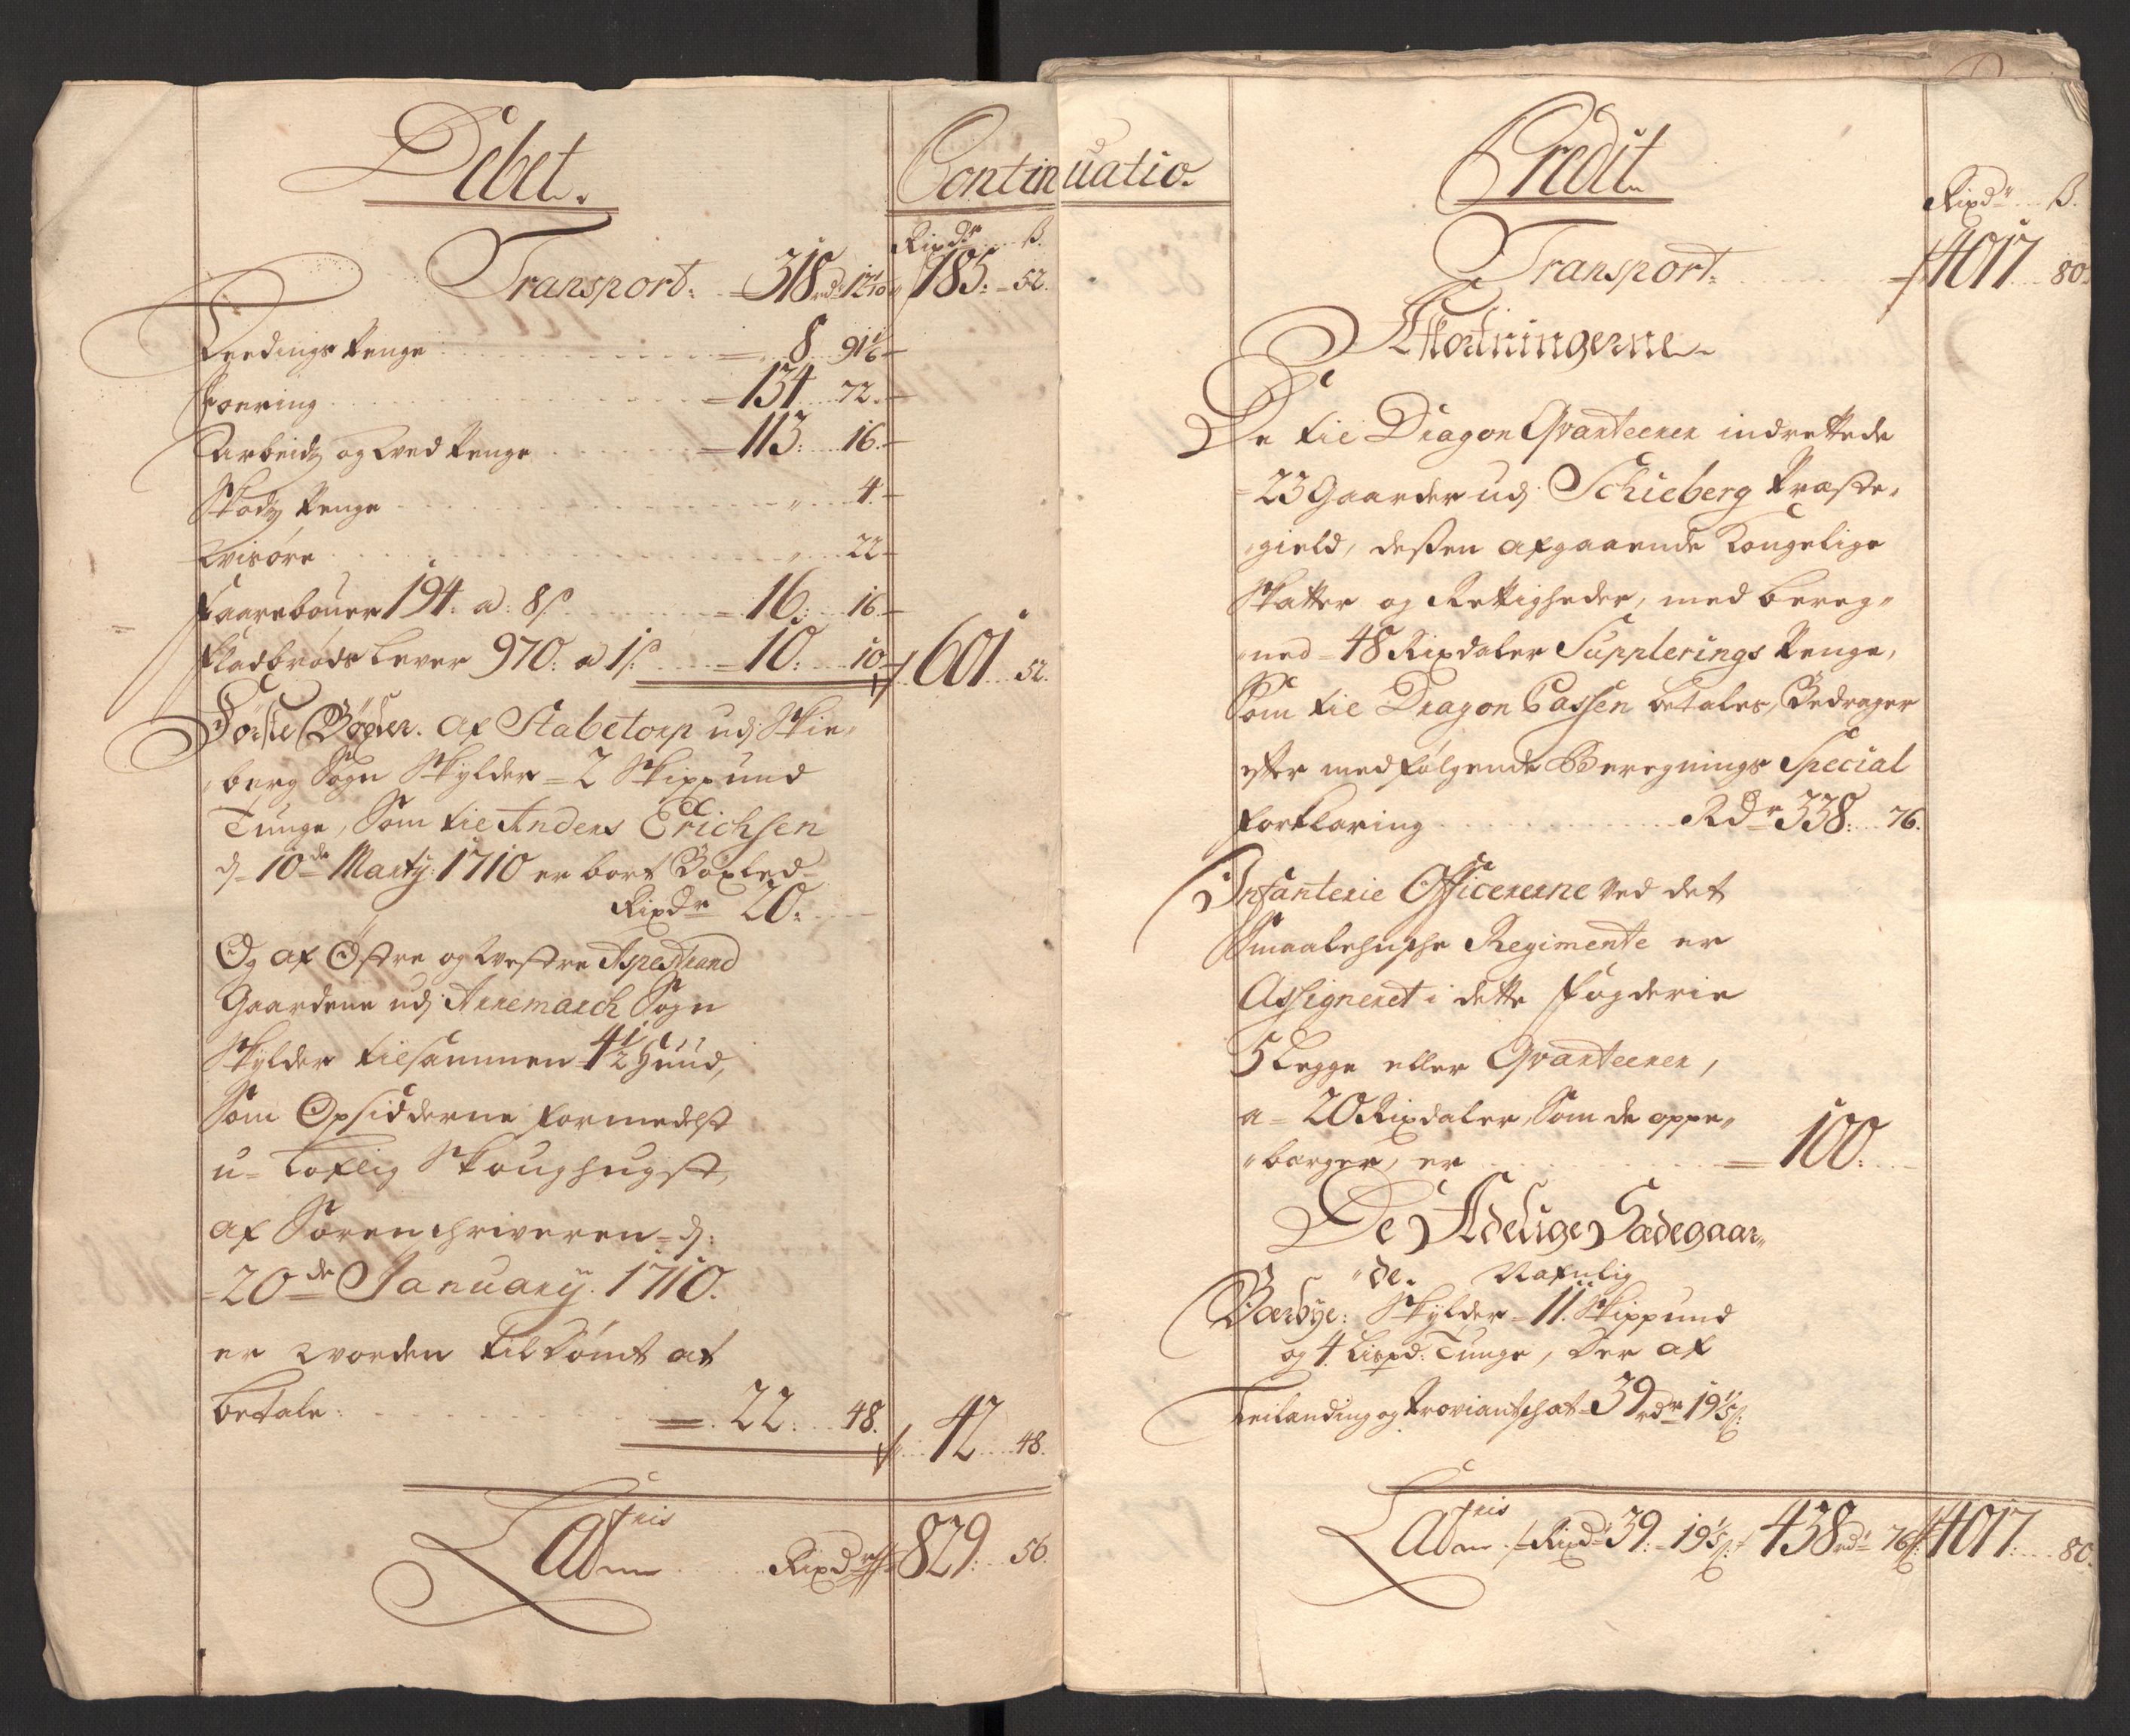 Debet.
Continuatio.
Rixdr ß.
Transport. 318 rdr 12 1/10 185: 52.
Leedings Penge 8 91 1/6
Foering 134 72.
Arbeids og Wed Penge 113: 16.
Skads Penge " 4.
Wisöre " 22
Faarebouer 194. a: 8 ß 16: 16.
Fladbröds Lever 970: a 1 ß 10: 10 601 52.
Förste Böxler. Af Stabetorp udj Skie-
berg Sogn Skylder 2 Skippund
Tunge, Som til Anders Erichsen
d. 10de Marty: 1710 er bort Böxled
Rixdr 20:
Og af Östre og Westre Aspestrand
Gaardene udj Annemarch Sogn
Skylder tilsammen 4 1/2 Huud,
Som Opsidderne formedelst
u-Loflig Skoughugst,
af Sorenschriveren d:
20de January. 1710.
er worden tildömt at
betale: 22: 48. 42 48.
Lateris Rixdr 829: 56.
Credit
Rixdr ß.
Transport. 4017 80.
Afkortningerne
De til Dragon Qvarteerer indrettede
23 Gaarder udj Schieberg Præste-
gield, dessen afgaaende Kongelige
Skatter og Rettigheder, med bereg-
ned 48 Rixdaler Supplerings Penge,
Som til Dragon Cassen betales, Bedrager
efter medfölgende Beregnings Special
forklaring Rdr 338: 76.
Infanterie Officererne ved det
Smaalehnske Regimente er
Assigneret i dette Fogderie
5 Legge eller Qvarteerer,
a 20 Rixdaler, Som de oppe-
barger, er 100:
De Adelige Sædegaar-
de. Nafnlig
Bærbye: Skylder 11. Skippund
og 4 Lispd: Tunge, Der af
Leilanding og Proviantskat 39 rdr 19 1/5 ß:
Lateris Rixdr 39: 19 1/5 ß: 438 rdr 76 ß: 4017: 80.